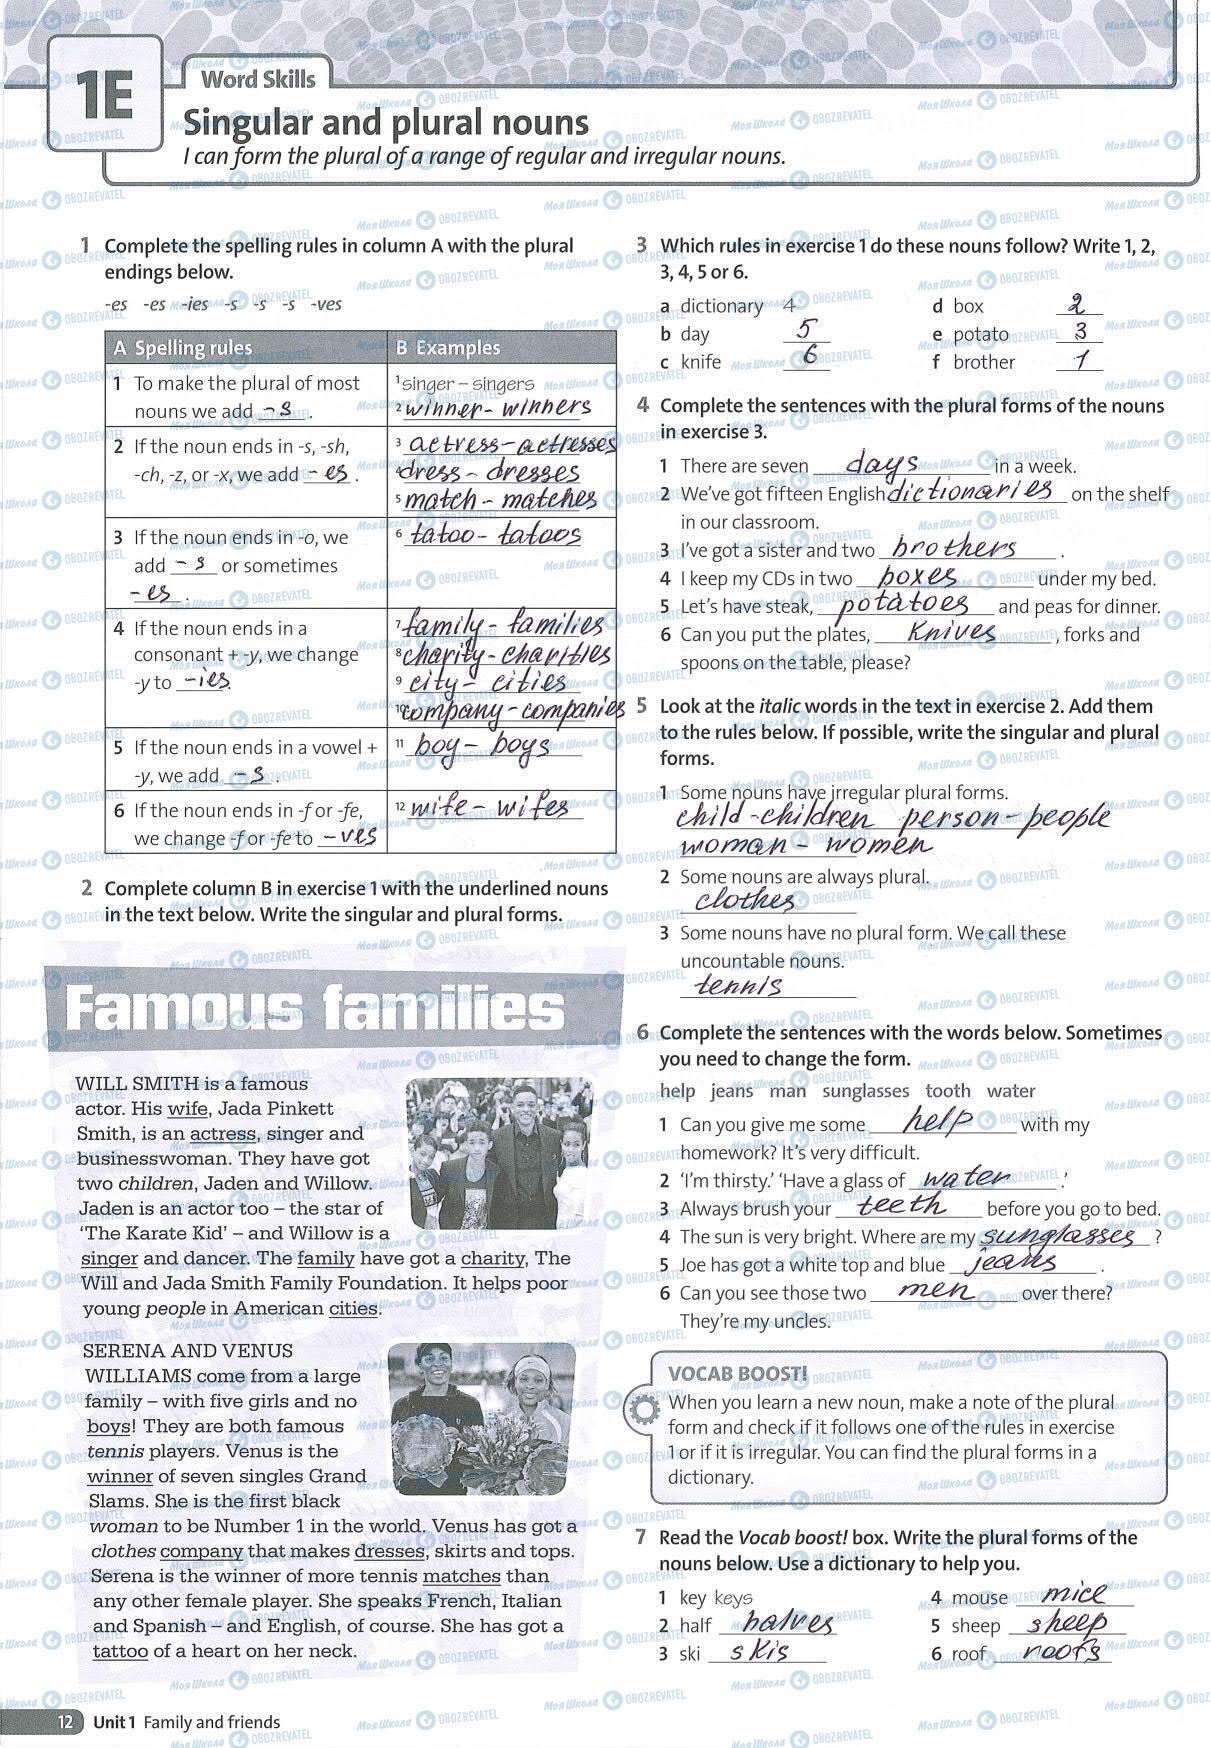 1E
Word Skills
Singular and plural nouns
I can form the plural of a range of regular and irregular nouns.
1 Complete the spelling rules in column A with the plural
endings below.
-es -es -ies -s -s -s -ves
A Spelling rules B Examples
1 To make the plural of most
nouns we add -s .
1 singer – singers
2 winner - winners
2 If the noun ends in -s, -sh,
-ch, -z, or -x, we add -es .
3 actress - actresses
4 dress - dresses
5 match - matches
3 If the noun ends in -o, we
add -s or sometimes
-es .
6 tatoo - tatoos
4 If the noun ends in a
consonant + -y, we change
-y to -ies.
7 family - families
8 charity - charities
9 city - cities
10 company - companies
5 If the noun ends in a vowel +
-y, we add -s .
11 boy - boys
6 If the noun ends in -f or -fe,
we change -f or -fe to -ves
12 wife - wifes
2 Complete column B in exercise 1 with the underlined nouns
in the text below. Write the singular and plural forms.
Famous families
WILL SMITH is a famous
actor. His wife, Jada Pinkett
Smith, is an actress, singer and
businesswoman. They have got
two children, Jaden and Willow.
Jaden is an actor too – the star of
‘The Karate Kid’ – and Willow is a
singer and dancer. The family have got a charity, The
Will and Jada Smith Family Foundation. It helps poor
young people in American cities.
SERENA AND VENUS
WILLIAMS come from a large
family – with five girls and no
boys! They are both famous
tennis players. Venus is the
winner of seven singles Grand
Slams. She is the first black
woman to be Number 1 in the world. Venus has got a
clothes company that makes dresses, skirts and tops.
Serena is the winner of more tennis matches than
any other female player. She speaks French, Italian
and Spanish – and English, of course. She has got a
tattoo of a heart on her neck.
12 Unit 1 Family and friends
3 Which rules in exercise 1 do these nouns follow? Write 1, 2,
3, 4, 5 or 6.
a dictionary 4 d box 2
b day 5 e potato 3
c knife 6 f brother 1
4 Complete the sentences with the plural forms of the nouns
in exercise 3.
1 There are seven days in a week.
2 We’ve got fifteen English dictionaries on the shelf
in our classroom.
3 I’ve got a sister and two brothers .
4 I keep my CDs in two boxes under my bed.
5 Let’s have steak, potatoes and peas for dinner.
6 Can you put the plates, knives , forks and
spoons on the table, please?
5 Look at the italic words in the text in exercise 2. Add them
to the rules below. If possible, write the singular and plural
forms.
1 Some nouns have irregular plural forms.
child - children person - people
woman - women
2 Some nouns are always plural.
clothes
3 Some nouns have no plural form. We call these
uncountable nouns.
tennis
6 Complete the sentences with the words below. Sometimes
you need to change the form.
help jeans man sunglasses tooth water
1 Can you give me some help with my
homework? It’s very difficult.
2 ‘I’m thirsty.’ ‘Have a glass of water .’
3 Always brush your teeth before you go to bed.
4 The sun is very bright. Where are my sunglasses ?
5 Joe has got a white top and blue jeans .
6 Can you see those two men over there?
They’re my uncles.
VOCAB BOOST!
When you learn a new noun, make a note of the plural
form and check if it follows one of the rules in exercise
1 or if it is irregular. You can find the plural forms in a
dictionary.
7 Read the Vocab boost! box. Write the plural forms of the
nouns below. Use a dictionary to help you.
1 key keys 4 mouse mice
2 half halves 5 sheep sheep
3 ski skis 6 roof roofs
Моя Школа OBOZREVATEL